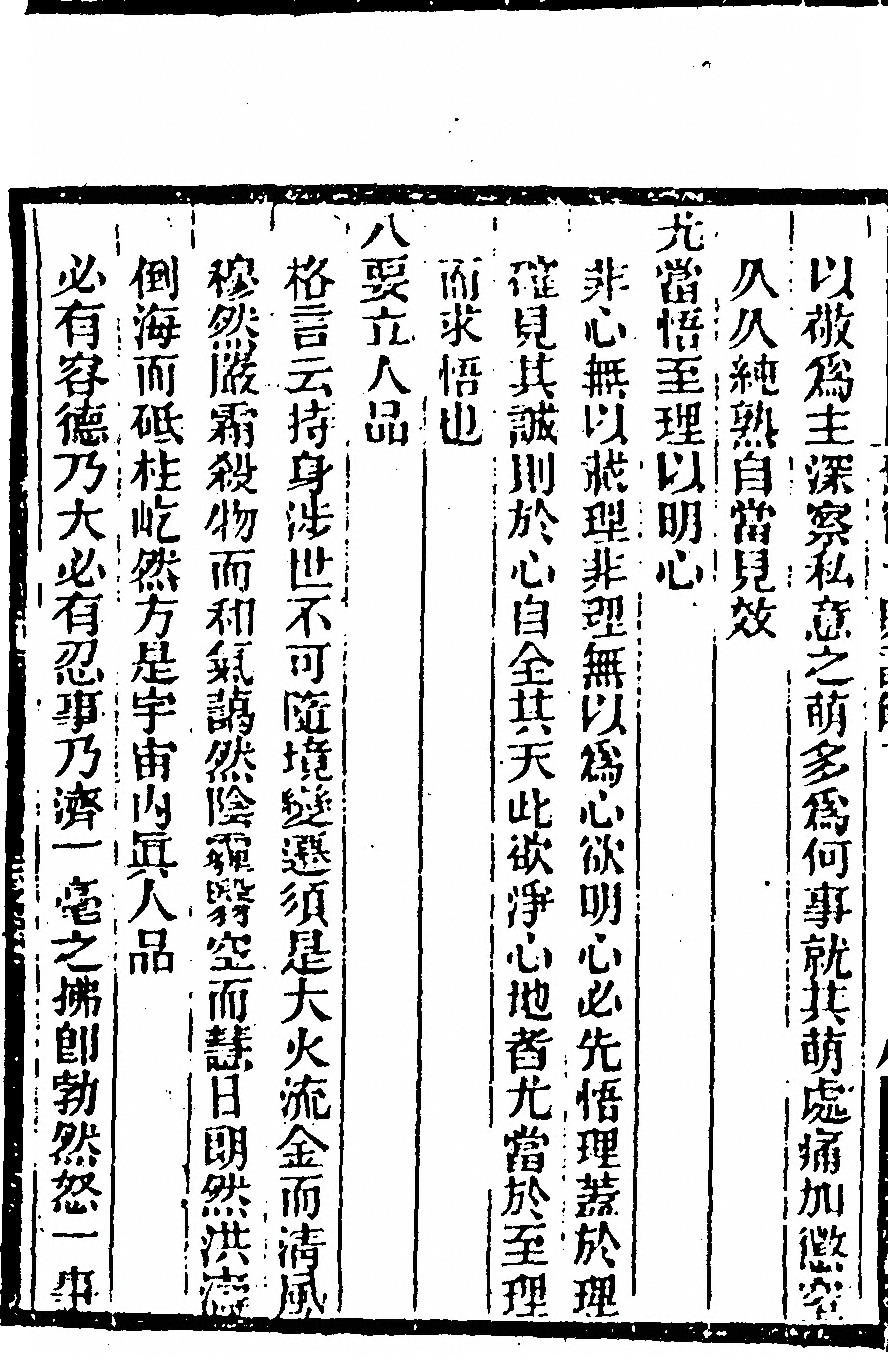 以敬爲主深察私意之萌多爲何事就其萌處痛加懲窒
久久純熟自當見效
尤當悟至理以明心
非心無以藏理非理無以爲心欲明心必先悟理蓋於理
確見其誠則於心自全其天此欲淨心地者尤當於至理
而求悟也
八要立人品
格言云持身涉世不可隨境變遷須是大火流金而清風
穆然嚴霜殺物而和氣藹然陰霾翳空而慧日朗然洪濤
倒海而砥柱屹然方是宇宙内眞人品
必有容德乃大必有忍事乃濟一毫之拂卽勃然怒一事